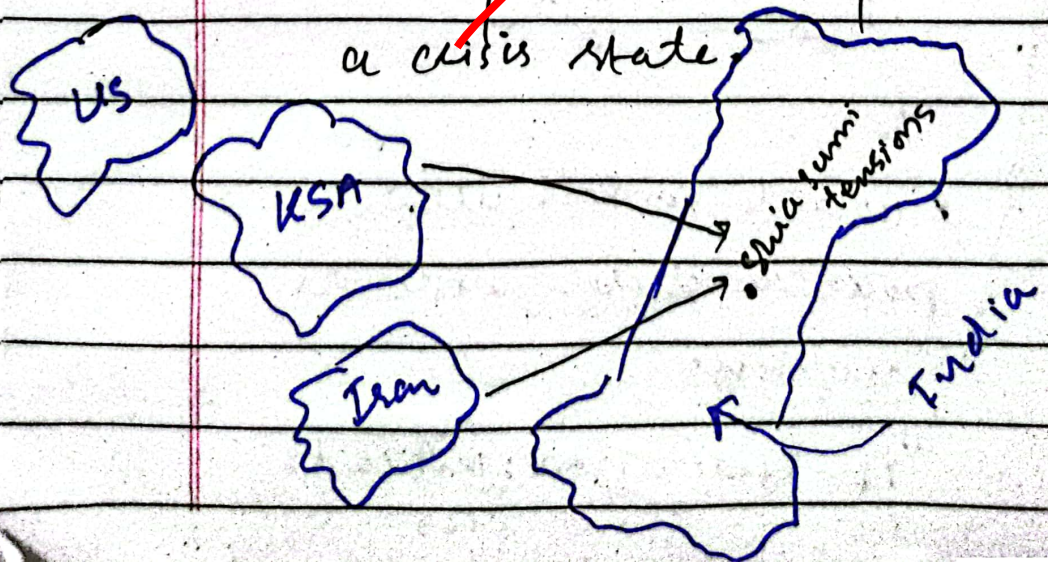 a crisis state.
US
KSA
shia sunni
tensions
Iran
India